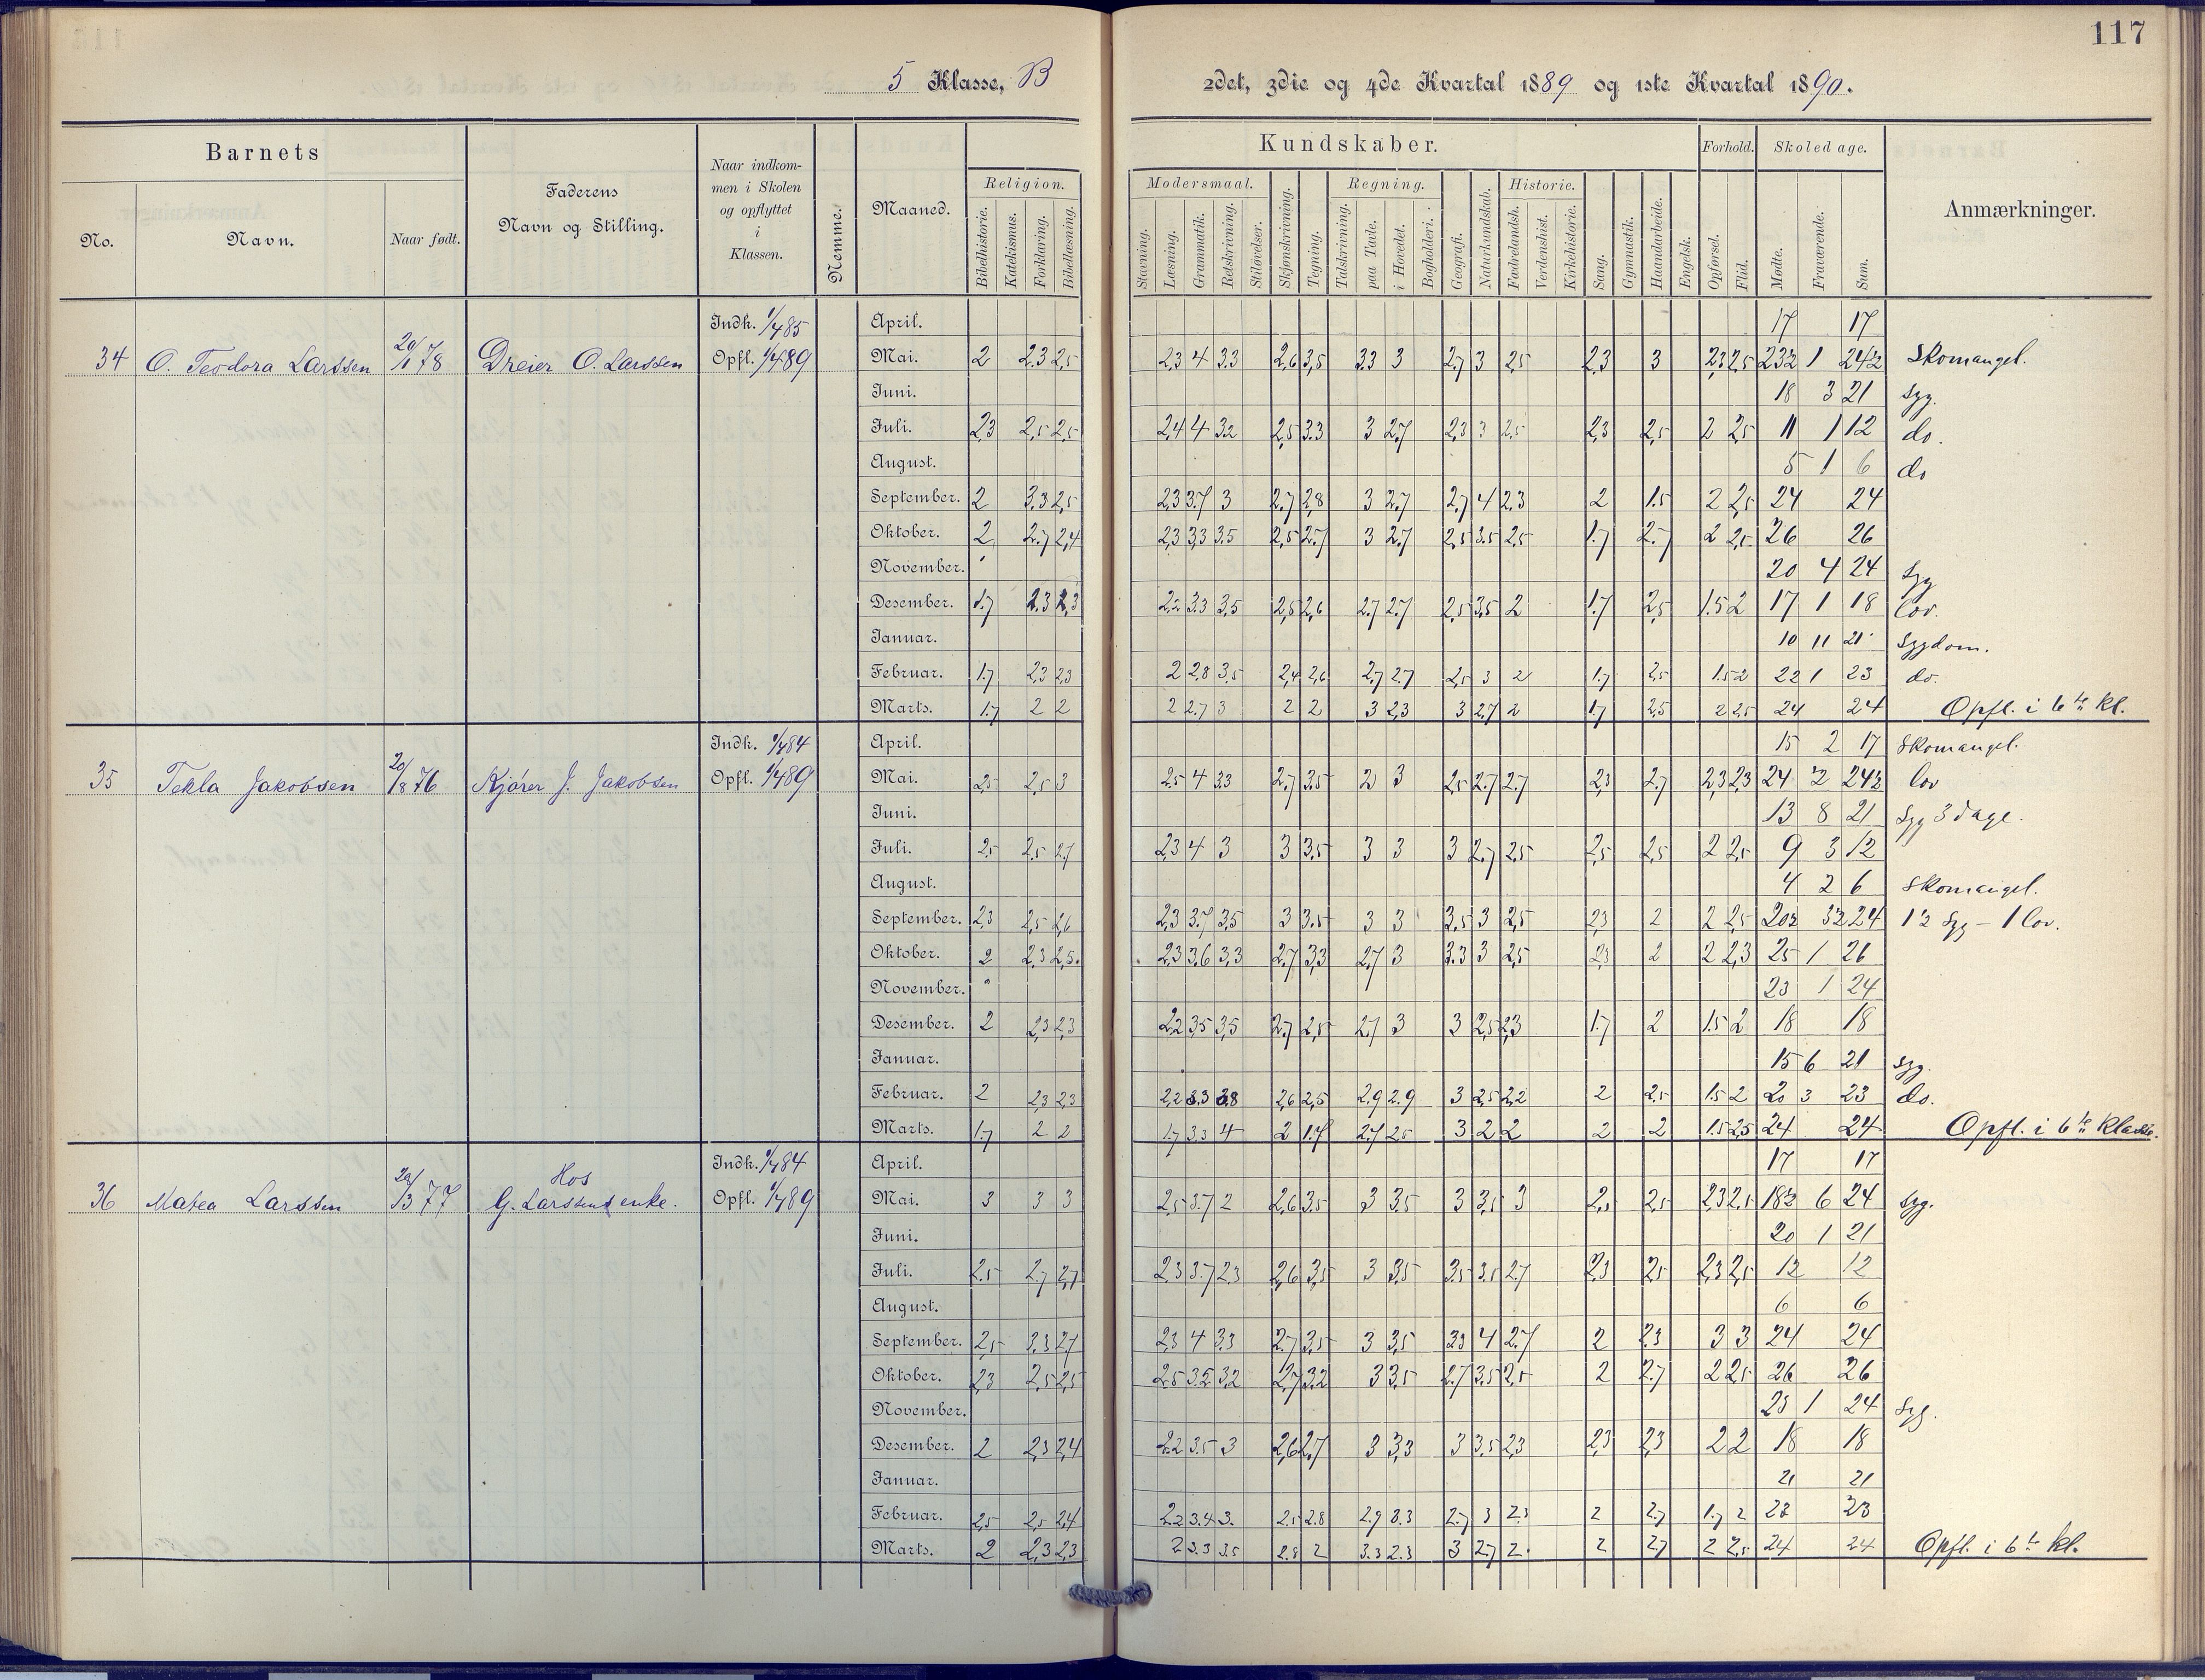 117
5 Klasse, B
2det, 3die og 4de Kvartal 1889 og 1ste Kvartal 1890.
Barnets
No.
Navn.
Naar født.
Faderens
Navn og Stilling.
Naar indkom-
men i Skolen
og opflyttet
i
Klassen.
Nemme.
Maaned.
Kundskaber.
Religion.
Bibelhistorie. Katekismus. Forklaring. Bibellæsning.
Modersmaal.
Stavning. Læsning. Grammatik. Retskrivning. Stiløvelser.
Skjønskrivning. Tegning.
Regning.
Talskrivning. paa Tavle. i Hovedet. Bogholderi.
Geografi. Naturkundskab.
Historie.
Fædrelandsh. Verdenshist. Kirkehistorie.
Sang. Gymnastik. Haandarbeide. Engelsk.
Forhold.
Opførsel. Flid.
Skoledage.
Mødte. Fraværende. Sum.
Anmærkninger.
34 O. Teodora Larssen 20/1 78 Dreier O. Larssen Indk. 1/4 85 Opfl. 1/4 89
April. 17 17
Mai. 2 2,3 2,5 2,3 4 3.3 2,6 3,5 3.3 3 2.7 3 2,5 2,3 3 2,3 2,5 23½ 1 24½ Skomangel.
Juni. 18 3 21 Syg.
Juli. 2,3 2,5 2,5 2,4 4 3.2 2,5 3.3 3 2.7 2,3 3 2.5 2,3 2,5 2 2,5 11 1 12 do.
August. 5 1 6 do
September. 2 3.3 2,5 2,3 3.7 3 2.7 2,8 3 2.7 2.7 4 2.3 2 1.5 2 2,5 24 24
Oktober. 2 2.7 2,4 2,3 3,3 3.5 2,5 2.7 3 2.7 2,5 3.5 2,5 1.7 2.7 2 2,5 26 26
November. 20 4 24 Syg
Desember. 1.7 2.3 2,3 2,2 3.3 3,5 2,5 2,6 2.7 2.7 2,5 3,5 2 1.7 2,5 1.5 2 17 1 18 lov.
Januar. 10 11 21 Sygdom.
Februar. 1.7 2,3 2,3 2 2,8 3,5 2,4 2,6 2.7 2.7 2,5 3 2 1.7 2,5 1.5 2 22 1 23 do.
Marts. 1.7 2 2 2 2.7 3 2 2 3 2,3 3 2.7 2 1.7 2,5 2 2,5 24 24 Opfl. i 6te kl.
35 Tekla Jakobsen 20/8 76 Kjører J. Jakobsen Indk. 1/4 84 Opfl. 1/4 89
April. 15 2 17 Skomangel.
Mai. 2,5 2,5 3 2.5 4 3.3 2.7 3.5 2 3 2,5 2.7 2.7 2,3 2.7 2,3 2,3 24 ½ 24½ lov
Juni. 13 8 21 Syg 3 dage.
Juli. 2,5 2,5 2.7 2,3 4 3 3 3,5 3 3 3 2.7 2,5 2,5 2,5 2 2,5 9 3 12
August. 4 2 6 Skomangel.
September. 2,3 2,5 2,6 2,3 3.7 3,5 3 3.5 3 3 3,5 3 2,5 2,3 2 2 2,5 20½ 3½ 24 1½ Syg – 1 lov.
Oktober. 2 2,3 2,5 2,3 3,6 3,3 2.7 3,3 2.7 3 3.3 3 2,5 2,3 2 2 2,3 25 1 26
November. 23 1 24
Desember. 2 2,3 2,3 2,2 3,5 3,5 2.7 2,5 2.7 3 3 2,5 2,3 1.7 2 1.5 2 18 18
Januar. 15 6 21 Syg.
Februar. 2 2,3 2,3 2,2 3.3 3.8 2,6 2,5 2.9 2.9 3 2,5 2,2 2 2,5 1.5 2 20 3 23 do.
Marts. 1.7 2 2 1.7 3.3 4 2 1.7 2.7 2.5 3 2 2 2 2 1.5 2,5 24 24 Opfl. i 6te Klasse.
36 Matea Larssen 20/3 77 Hos G. Larssens enke. Indk. 1/4 84 Opfl. 1/4 89
April. 17 17
Mai. 3 3 3 2,5 3.7 2 2,6 3.5 3 3.5 3 3,5 3 2,5 2,5 2,3 2,5 18½ 6 24 Syg.
Juni. 20 1 21
Juli. 2,5 2.7 2.7 2,3 3.7 2.3 2,6 3,5 3 3,5 3,5 3.5 2.7 2,3 2,5 2,3 2,5 12 12
August. 6 6
September. 2,5 3.3 2.7 2,3 4 3.3 2.7 3,5 3 3,5 3,3 4 2.7 2 2.3 3 3 24 24
Oktober. 2,3 2,5 2,5 2,5 3.5 3,2 2.7 3.2 3 3,5 2.7 3,5 2,5 2 2.7 2 2,5 26 26
November. 23 1 24 Syg.
Desember. 2 2,3 2,4 2.2 3.5 3 2,6 2.7 3 3,3 3 3,5 2,3 2,3 2,3 2 2 18 18
Januar. 21 21
Februar. 2,5 2,5 2,4 2.2 3.4 3. 2.5 2.8 2.9 3.3 2.7 3 2.3 2 2.7 1.7 2 23 23
Marts. 2 2,3 2,3 2 3.3 3.5 2.8 2 3.3 2.3 3 2.7 2. 2 2.7 2 2,5 24 24 Opfl. i 6te kl.